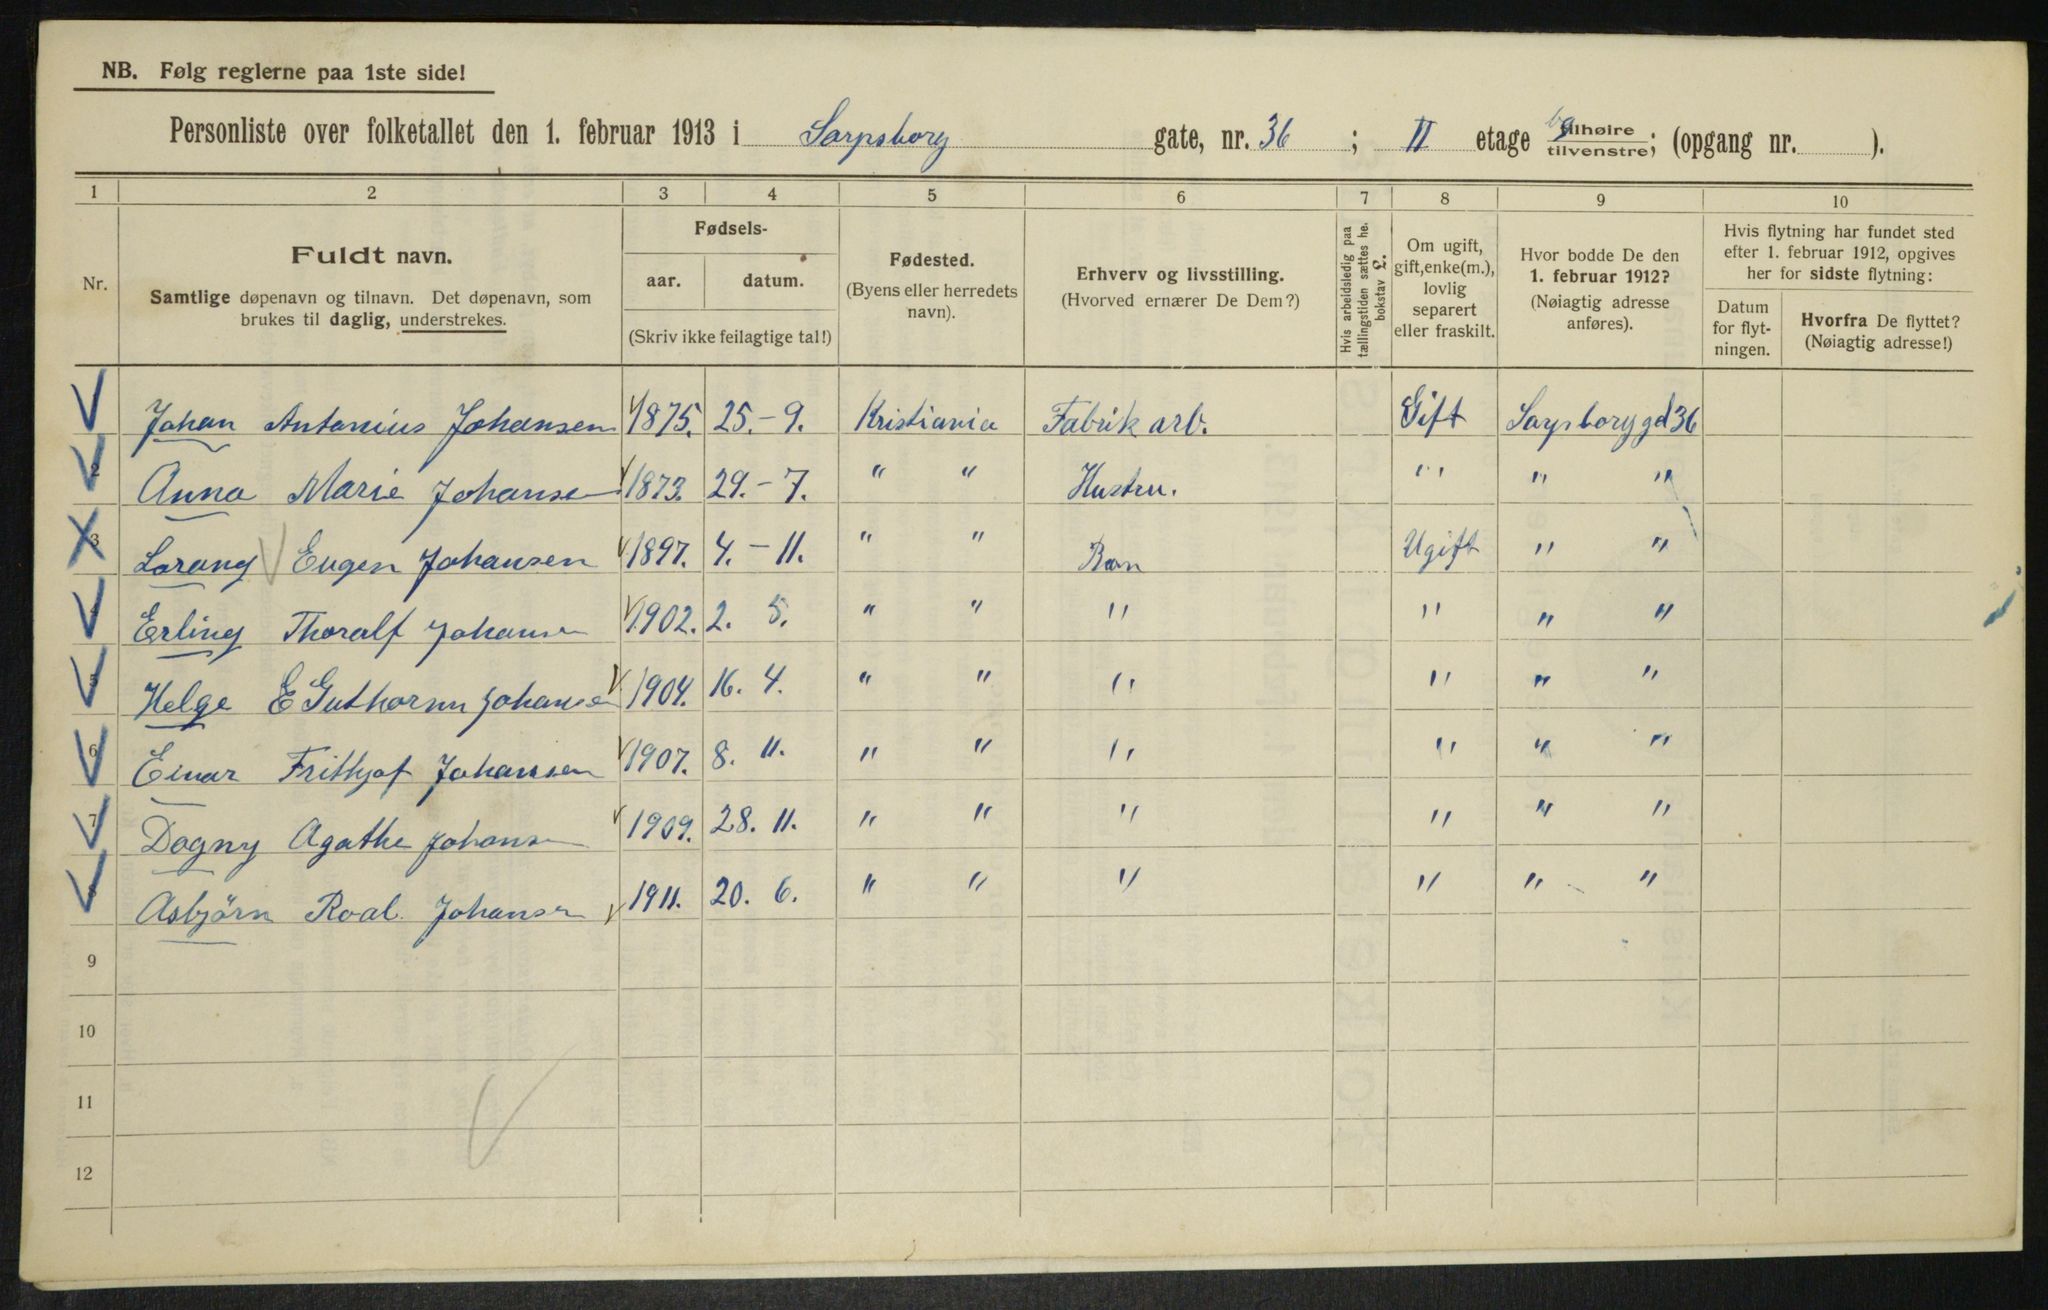 NB. Følg reglerne paa 1ste side!
Personliste over folketallet den 1. februar 1913 i Sarpsborg gate, nr. 36 ; II etage tilhøire tilvenstre; (opgang nr. ).
1 2 3 4 5 6 7 8 9 10
Nr.
Fuldt navn.
Samtlige døpenavn og tilnavn. Det døpenavn, som
brukes til daglig, understrekes.
Fødsels-
aar. datum.
(Skriv ikke feilagtige tal!)
Fødested.
(Byens eller herredets
navn).
Erhverv og livsstilling.
(Hvorved ernærer De Dem?)
Hvis arbeidsledig paa
tællingstiden sættes he.
bokstav L.
Om ugift,
gift, enke(m.),
lovlig
separert
eller fraskilt.
Hvor bodde De den
1. februar 1912?
(Nøiagtig adresse
anføres).
Hvis flytning har fundet sted
efter 1. februar 1912, opgives
her for sidste flytning:
Datum
for flyt-
ningen.
Hvorfra De flyttet?
(Nøiagtig adresse!)
Johan Antonius Johansen 1875. 25.-9. Kristiania Fabrik arb. Gift Sarpsborggd 36
2 Anna Marie Johansen 1873. 29.-7. " " Hustru. " " "
3 Lorang Eugen Johansen 1897. 4.-11. " " Barn Ugift " "
4 Erling Thoralf Johansen 1902. 2. 5. " " " " " "
5 Helge E Guthorm Johansen 1904. 16. 4. " " " " " "
6 Einar Frithjof Johansen 1907. 8. 11. " " " " " "
7 Dagny Agathe Johansen 1909. 28. 11. " " " " " "
8 Asbjörn Roal. Johansen 1911. 20. 6. " " " " " "
9
10
11
12